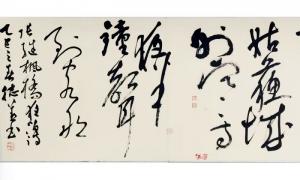 姑蘇城
外寒山寺
夜半
鐘聲
到客船
張繼楓橋夜泊詩
乙巳之春德書